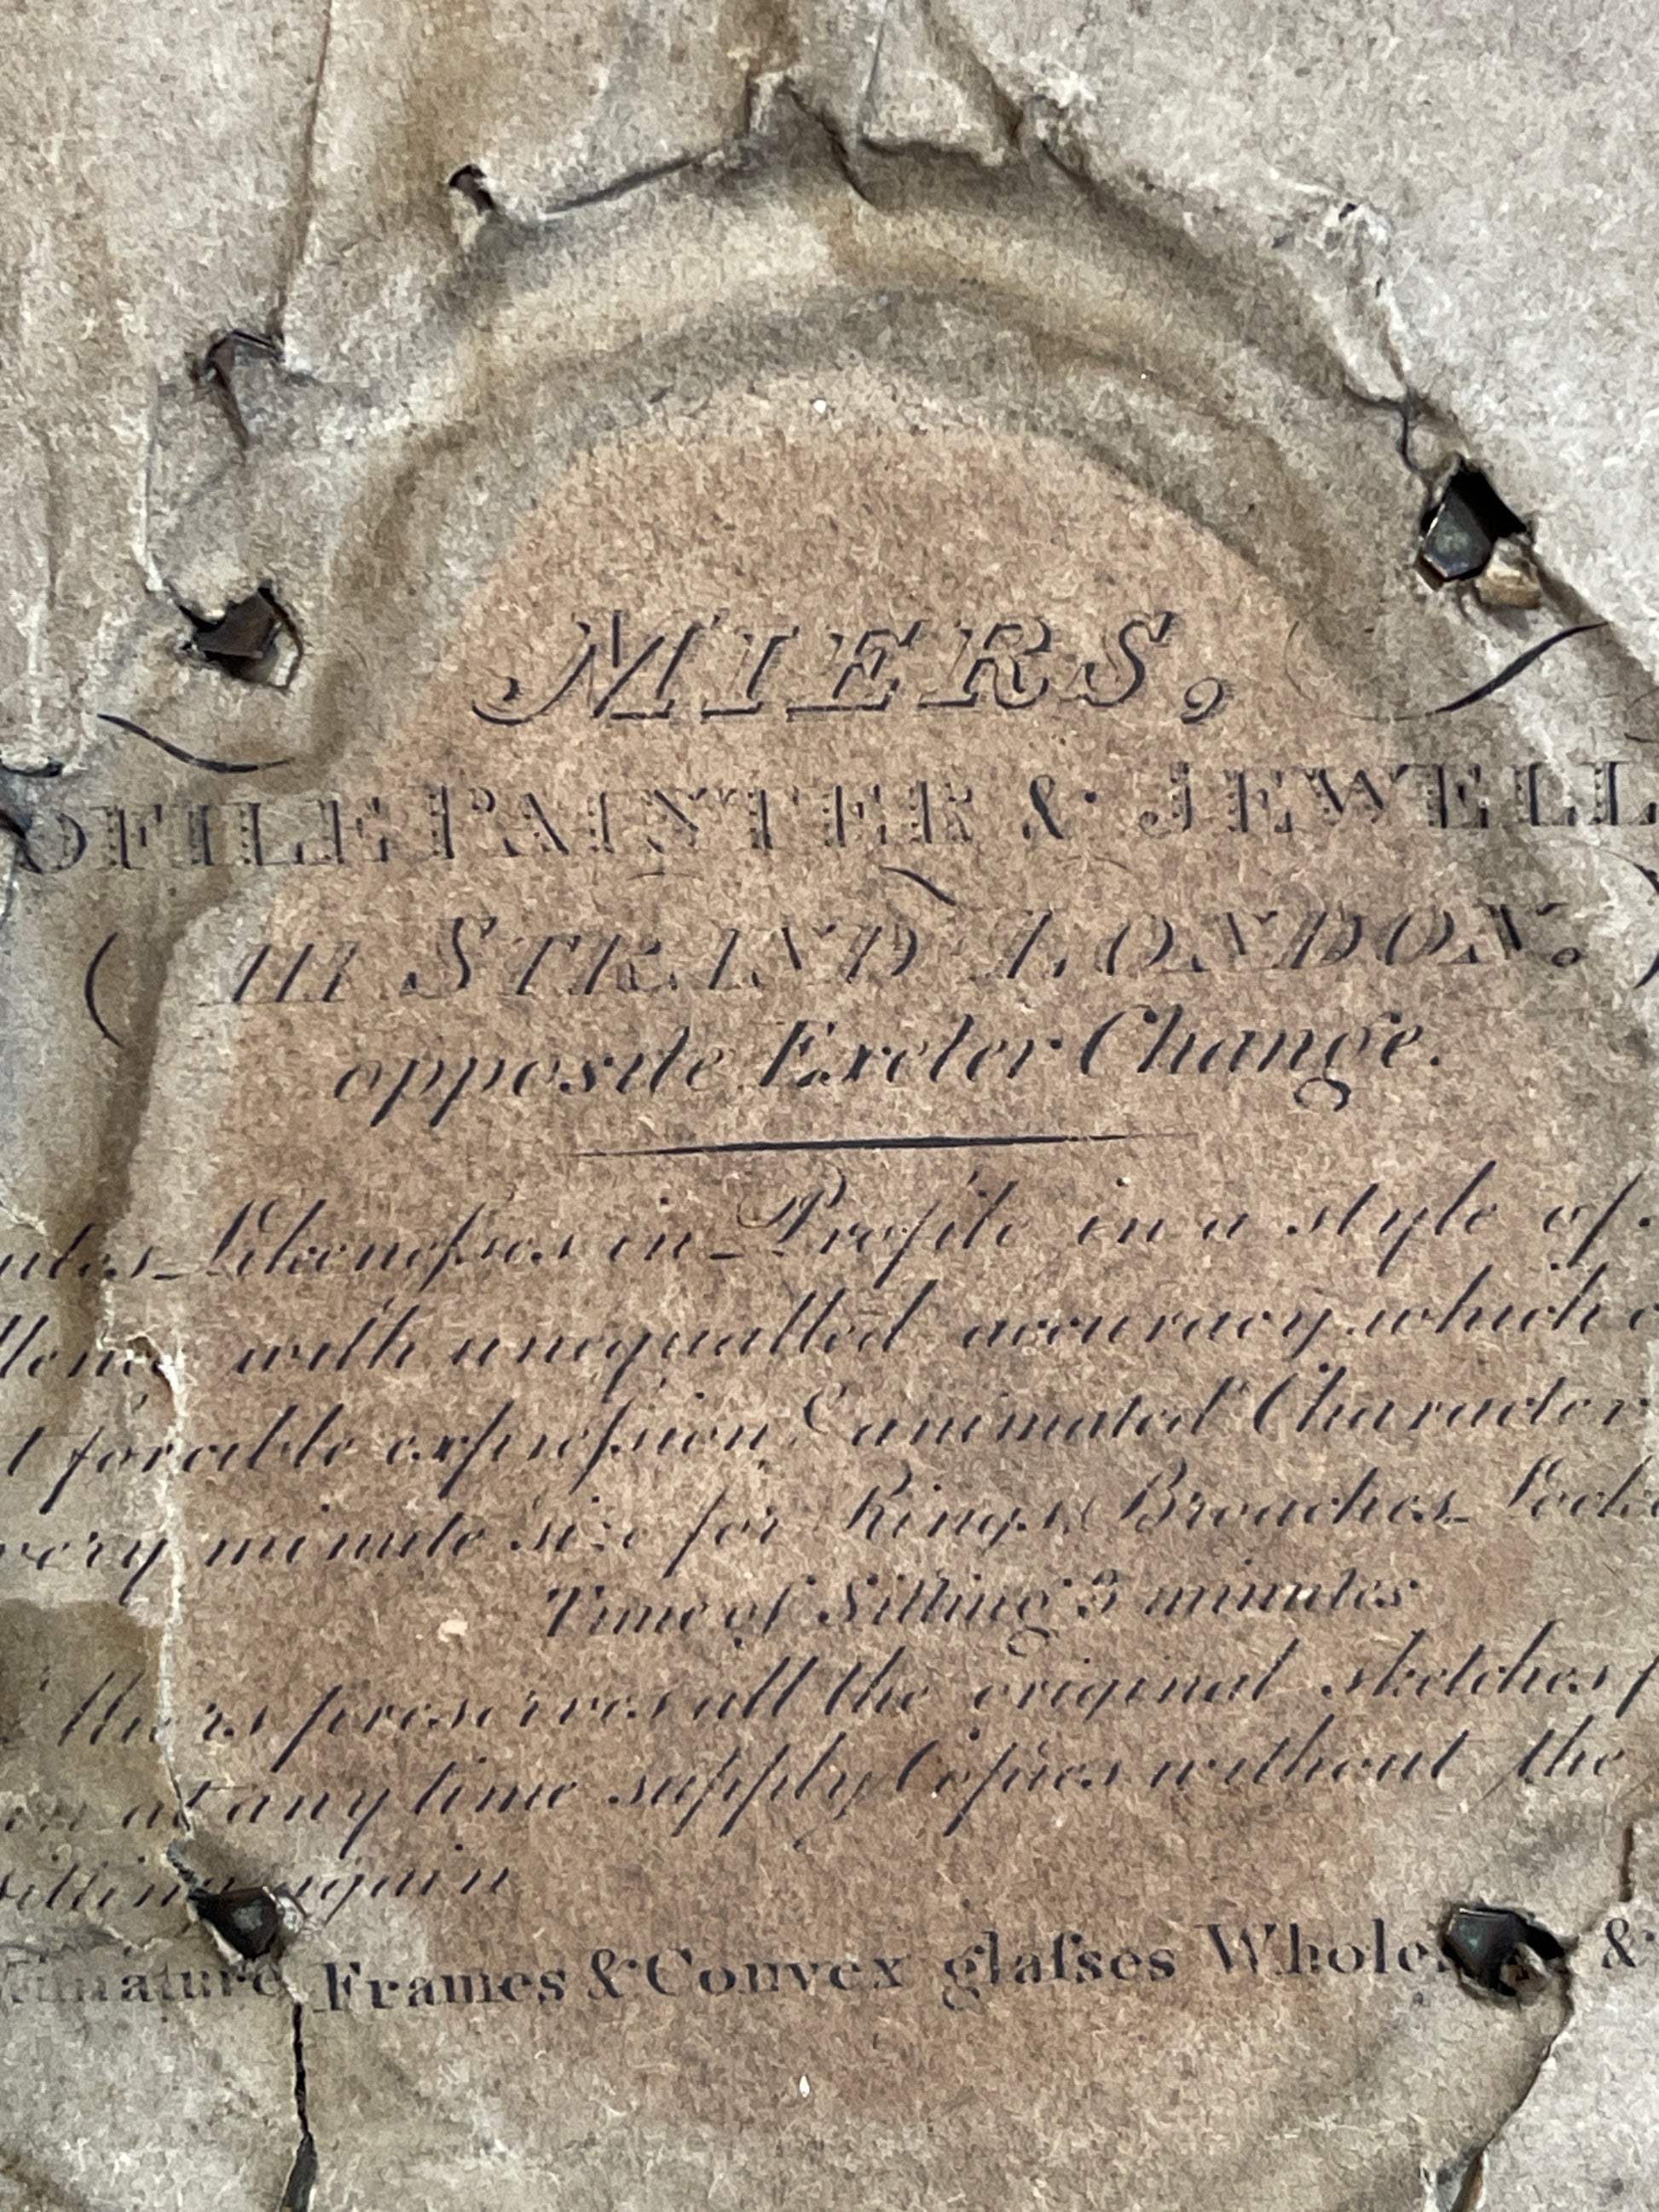 MIERS,
OFILE PAINTER & JEWELL
(111 STRAND LONDON.)
opposite Exeter Change.
utes Likeneſses in Profile in a style of
llence with unequalled accuracy which c
t forcible expreſsion & animated Character
very minute size for Rings Broaches Locke
Time of Sitting 3 minutes
preserves all the original sketches f
at any time supply Copies without the
sitting again
Miniature Frames & Convex glaſses &